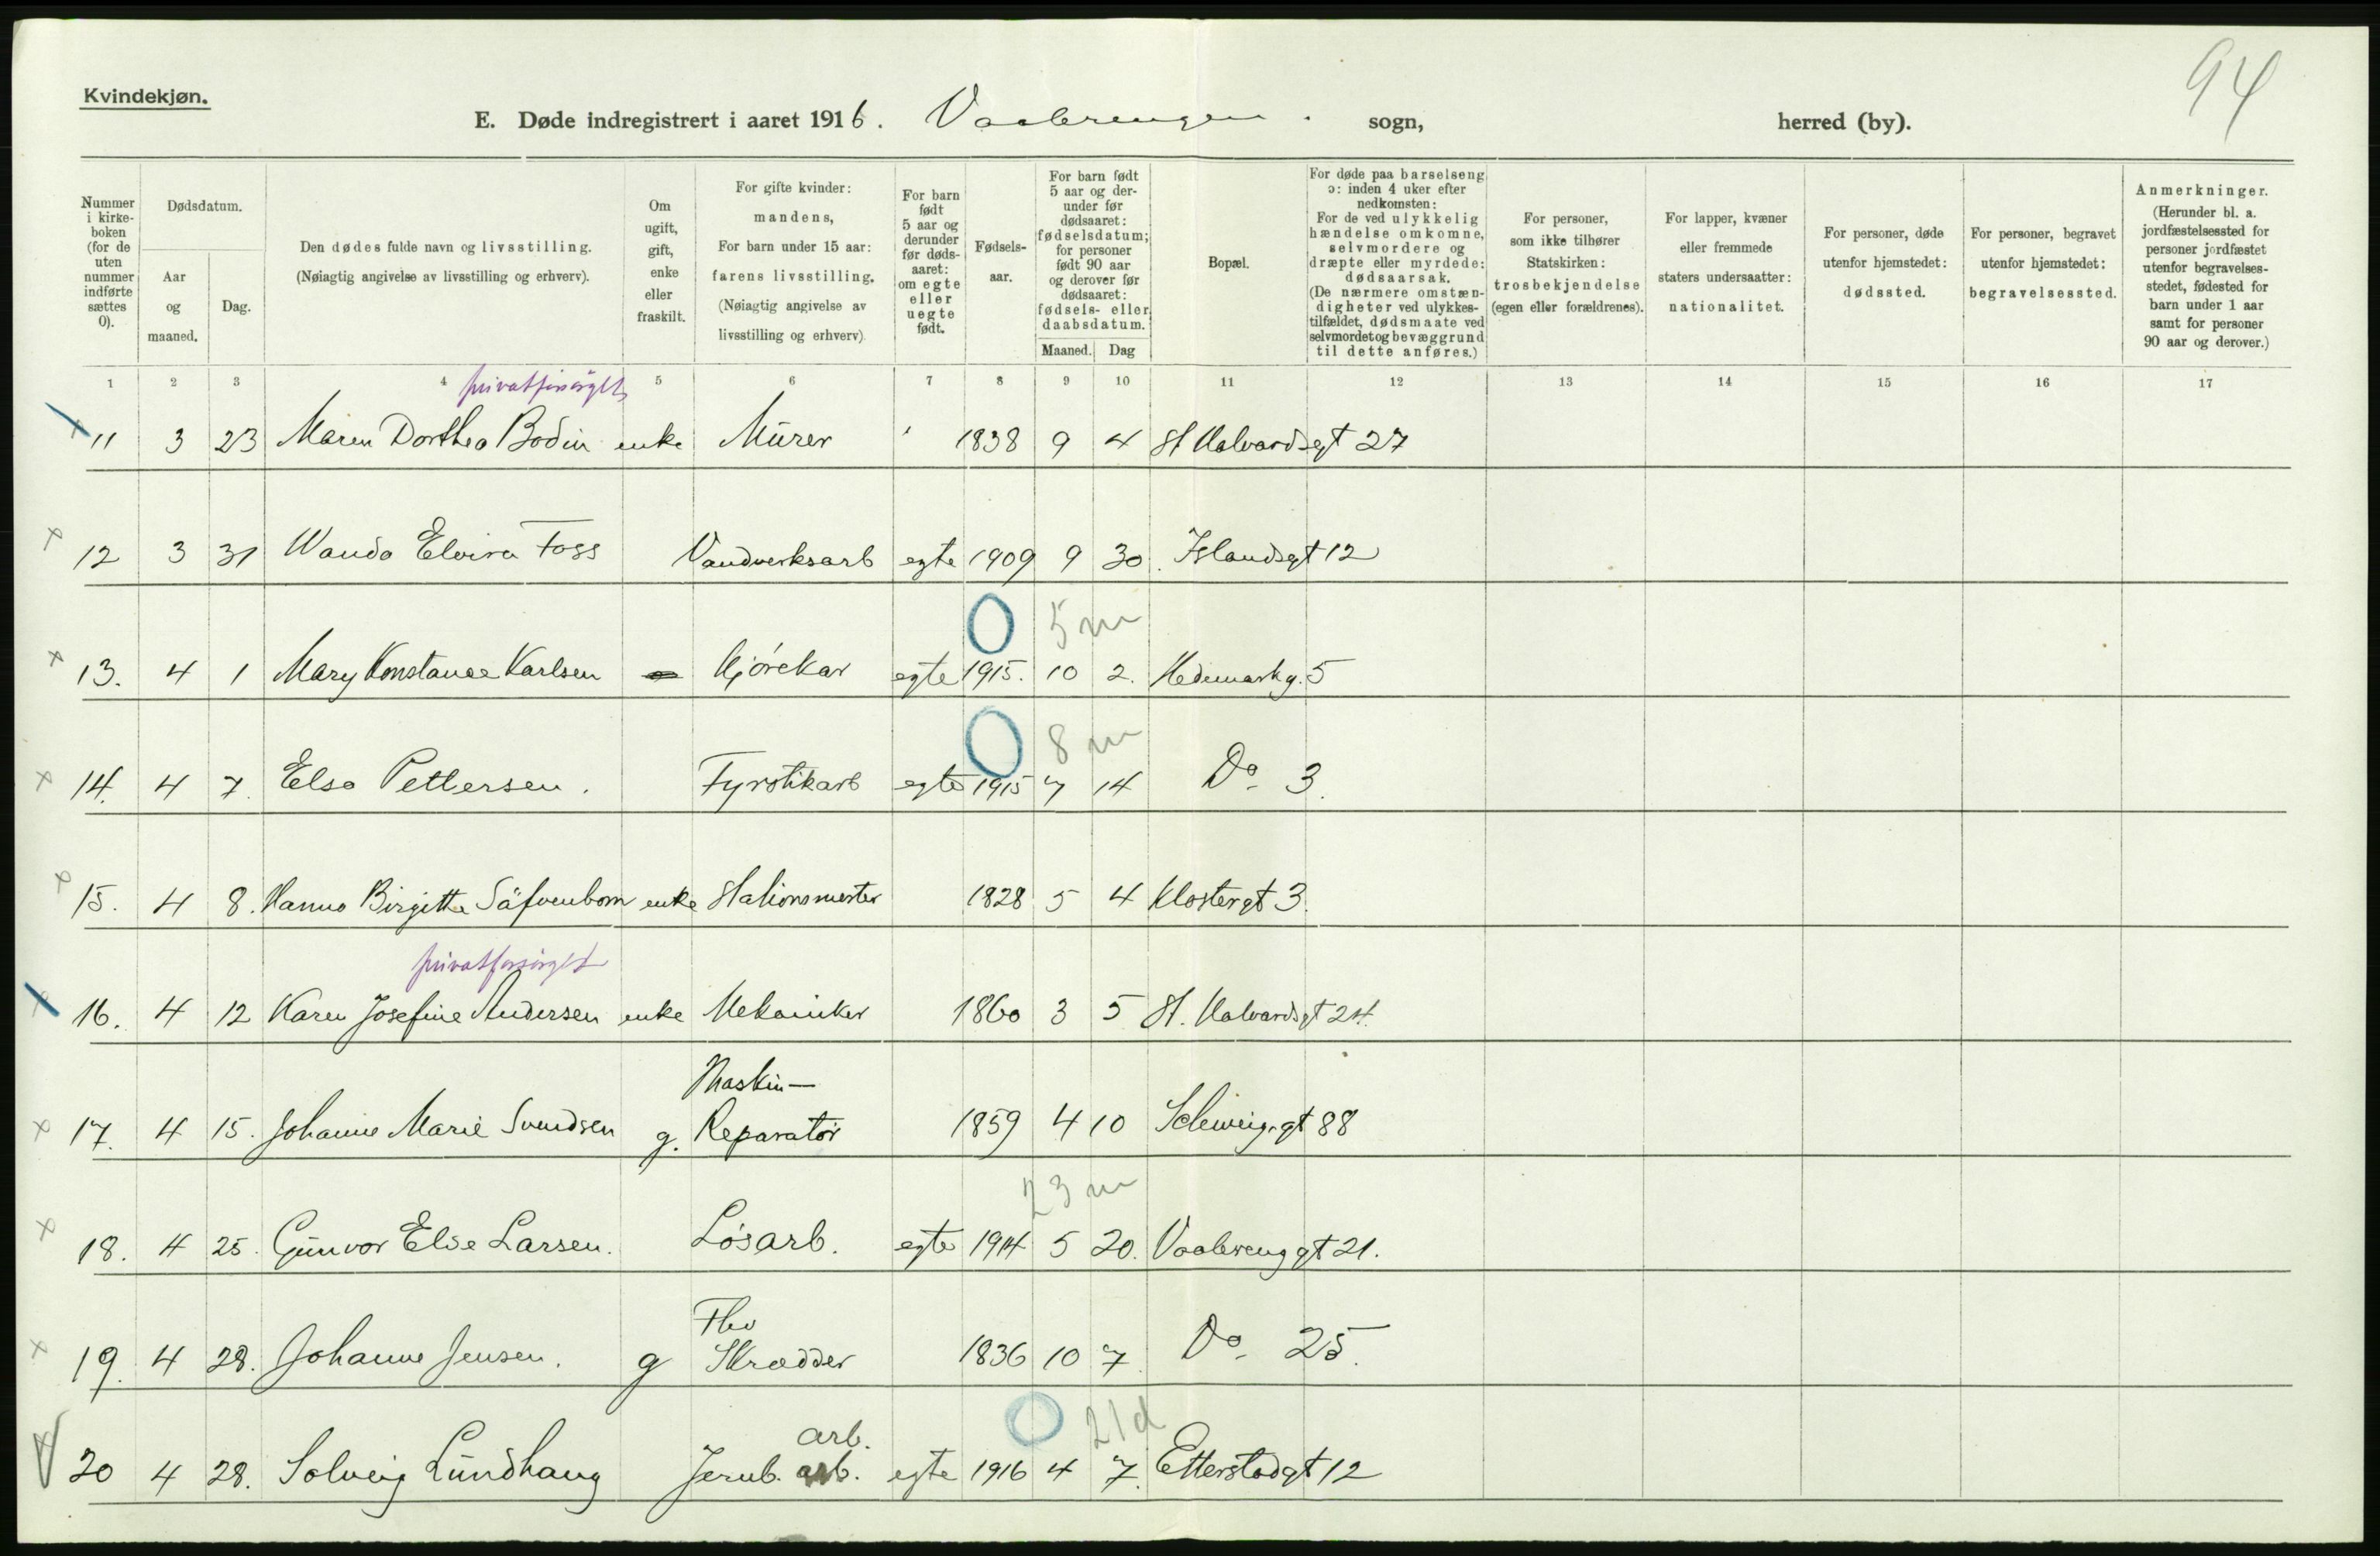 94
Kvindekjøn.
E. Døde indregistrert i aaret 1916. Vaalerengen. sogn, herred (by).
Nummer i kirkeboken (for de uten nummer indførte sættes 0).
Dødsdatum.
Aar og maaned.
Dag.
Den dødes fulde navn og livsstilling.
(Nøiagtig angivelse av livsstilling og erhverv).
Om ugift, gift, enke eller fraskilt.
For gifte kvinder: mandens,
For barn under 15 aar: farens livsstilling.
(Nøiagtig angivelse av livsstilling og erhverv)
For barn født 5 aar og derunder før dødsaaret: om egte eller uegte født.
Fødselsaar.
For barn født 5 aar og derunder før dødsaaret: fødselsdatum; for personer født 90 aar og derover før dødsaaret: fødsels- eller daabsdatum.
Maaned. Dag
Bopæl.
For døde paa barselseng ɔ: inden 4 uker efter nedkomsten:
For de ved ulykkelig hændelse omkomne, selvmordere og dræpte eller myrdede: dødsaarsak.
(De nærmere omstændigheter ved ulykkestilfældet, dødsmaate ved selvmordet og bevæggrund til dette anføres.)
For personer, som ikke tilhører Statskirken: trosbekjendelse (egen eller forældrenes).
For lapper, kvæner eller fremmede staters undersaatter: nationalitet.
For personer, døde utenfor hjemstedet: dødssted.
For personer, begravet utenfor hjemstedet: begravelsessted.
Anmerkninger.
(Herunder bl. a. jordfæstelsessted for personer jordfæstet utenfor begravelsesstedet, fødested for barn under 1 aar samt for personer 90 aar og derover.)
1 2 3 4 5 6 7 8 9 10 11 12 13 14 15 16 17
privatforsørget
11 3 23 Maren Dorthea Bodin enke Murer 1838 9 4 St Halvardsgt 27
12 3 31 Wanda Elvira Foss Vandverksarb egte 1909 9 30. Islandsgt 12
0 5 m
13. 4 1 Mary Konstance Karlsen Kjørekar egte 1915. 10 2. Hedemarkg. 5
0 8 m
14. 4 7. Elsa Pettersen. Fyrstikarb egte 1915 7 14 Do 3.
15. 4 8. Hanna Birgitte Säfvenbom enke Stationsmester 1828 5 4 Klostergt 3.
privatforsørget
16. 4 12 Karen Josefine Andersen enke Mekaniker 1860 3 5 St. Halvardsgt 24.
Maskin-
17. 4 15. Johanne Marie Svendsen g. Reparatør 1859 4 10 Schweig.gt 88
23 m
18. 4 25. Gunvor Else Larsen. Løsarb. egte 1914 5 20. Vaalereng gt 21.
Fhv
19. 4 28. Johanne Jensen. g Skrædder 1836 10 7. Do 25.
0 21 d
arb.
20 4 28. Solveig Lundhaug Jernb. arb. egte 1916 4 7. Etterstadgt 12